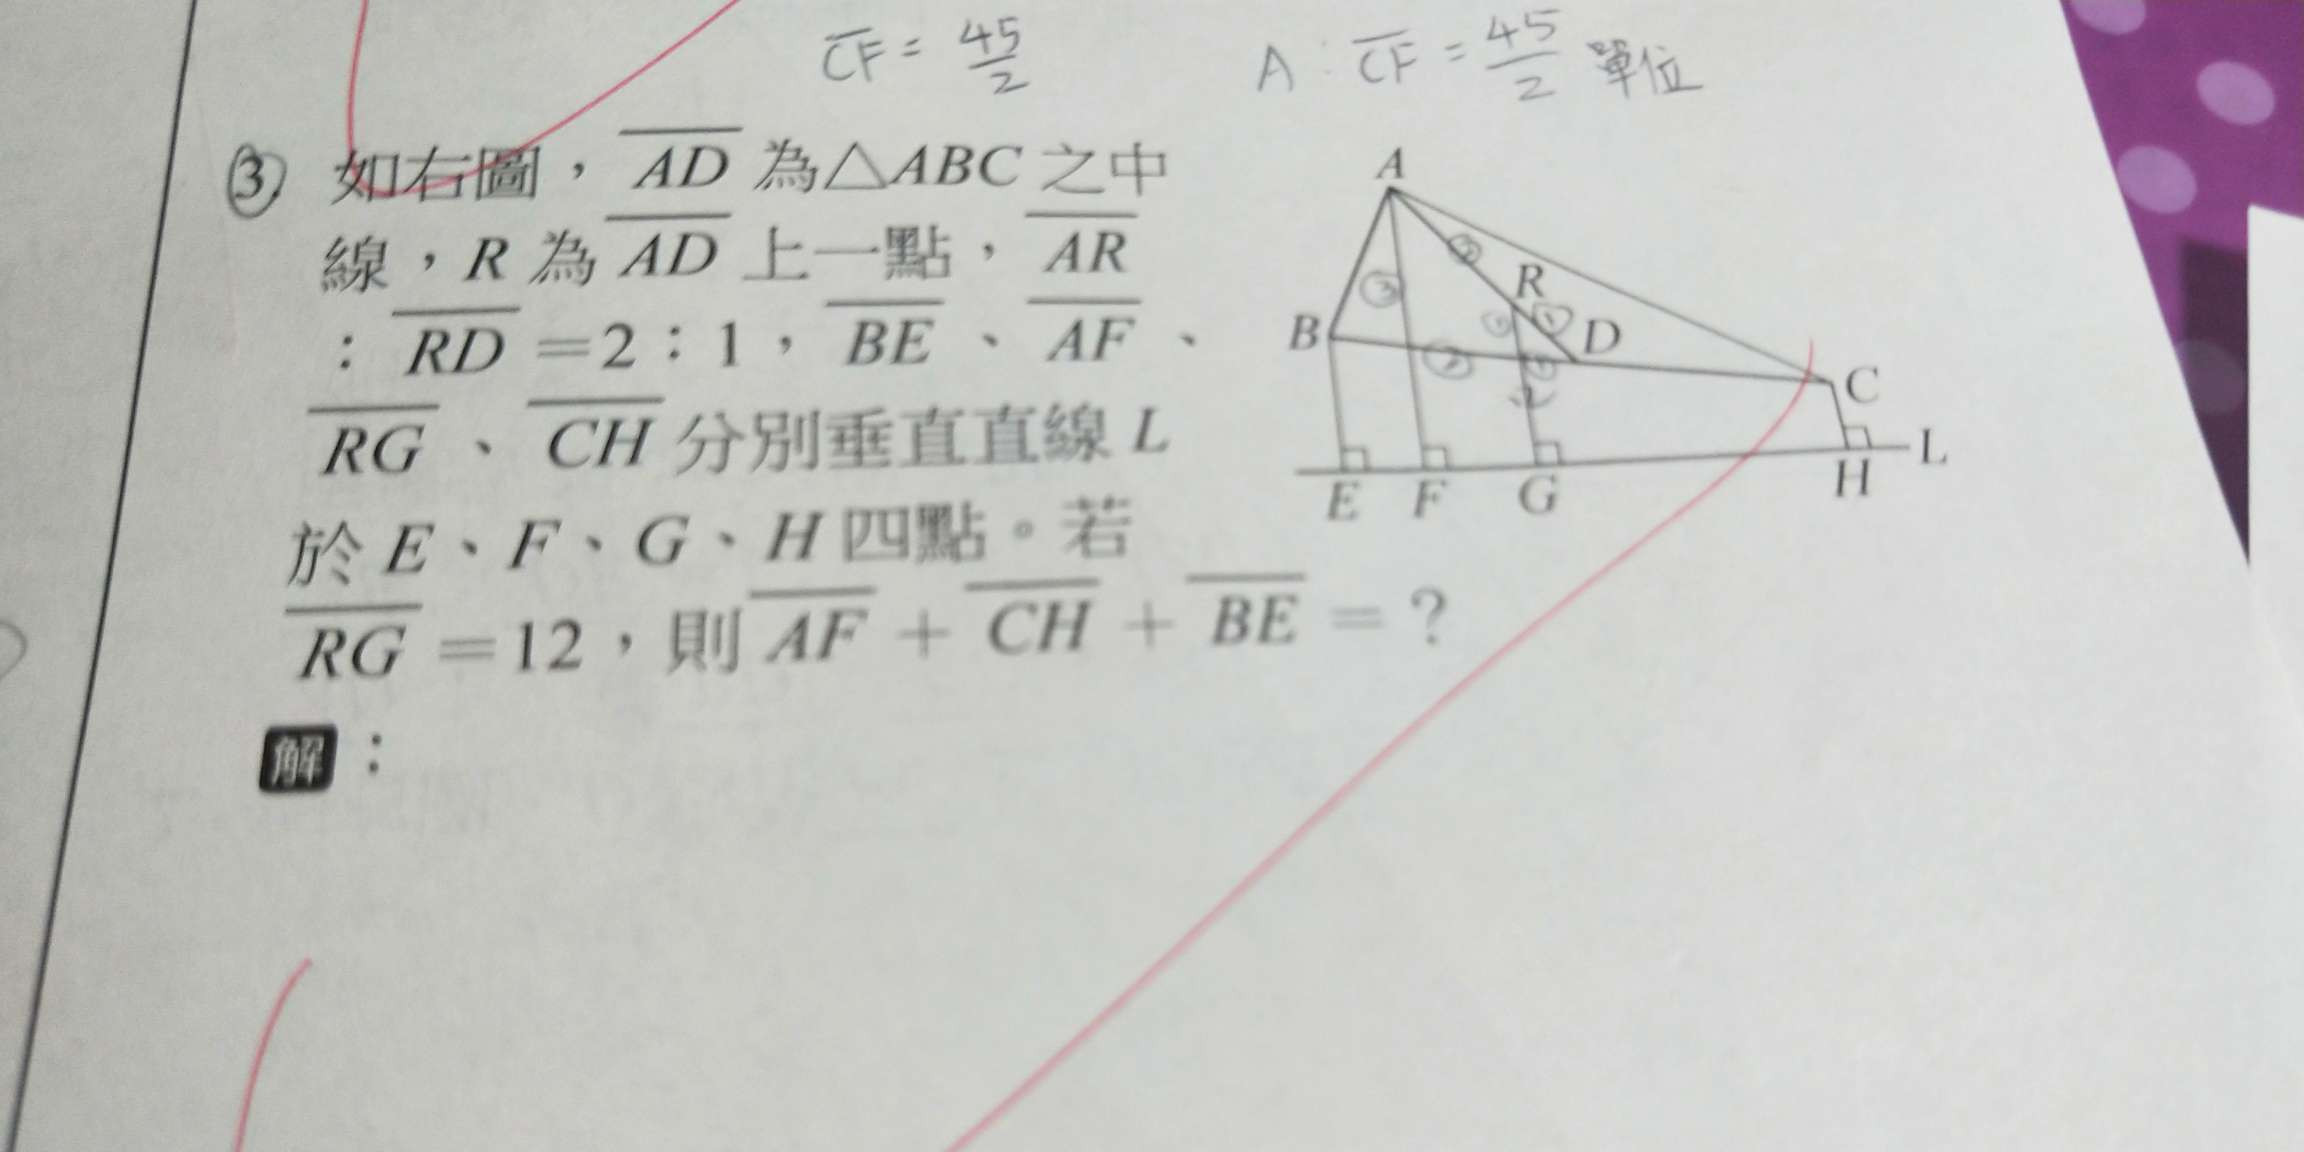 CF = 45/2    A : CF = 45/2 單位
③ 如右圖，AD 為△ABC 之中
線，R 為 AD 上一點，AR
：RD ＝2：1，BE、AF、
RG、CH 分別垂直直線 L
於 E、F、G、H 四點。若
RG ＝12，則 AF ＋ CH ＋ BE ＝？
解：
A
R
B
D
C
L
E F G H
② ③ ① ① ② ①